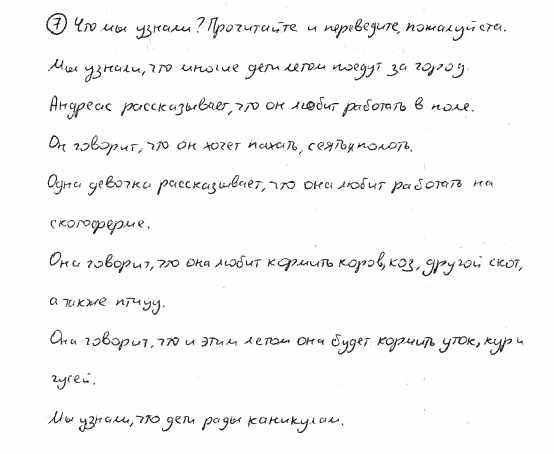 ⑦ Что мы узнали? Прочитайте и переведите, пожалуйста.
Мы узнали, что многие дети летом поедут за город.
Андреас рассказывает, что он любит работать в поле.
Он говорит, что он хочет пахать, сеять и полоть.
Одна девочка рассказывает, что она любит работать на
скотоферме.
Она говорит, что она любит кормить коров, коз, другой скот,
а также птицу.
Она говорит, что и этим летом она будет кормить уток, кур и
гусей.
Мы узнали, что дети рады каникулам.